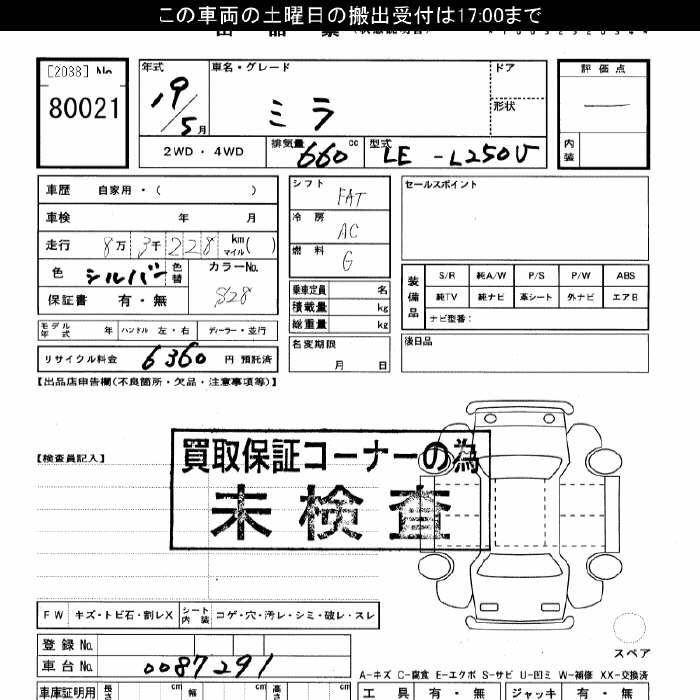 この車両の土曜日の搬出受付は17:00まで
[2088] No
80021
年式 車名・グレード ドア 評価点
19/5月 ミラ 形状 —
2WD・4WD 排気量 660 cc 型式 LE-L250V 内装
車歴 自家用・( )
車検 年 月
走行 8万3千228 km マイル( )
色 シルバー 色替 カラーNo.
保証書 有・無 S28
モデル年式 年 ハンドル 左・右 ディーラー・並行
リサイクル料金 6360 円 預託済
シフト FAT
冷房 AC
燃料 G
乗車定員 名
積載量 kg
総重量 kg
名変期限 月 日
セールスポイント
装備品 S/R 純A/W P/S P/W ABS
純TV 純ナビ 革シート 外ナビ エアB
ナビ型番:
後日品
【出品店申告欄(不良箇所・欠品・注意事項等)】
【検査員記入】
買取保証コーナーの為
未検査
FW キズ・トビ石・割レX シート内装 コゲ・穴・汚レ・シミ・破レ・スレ
登録No.
車台No. 0087291
車庫証明用 長さ cm 幅 cm 高さ cm
スペア
A-キズ C-腐食 E-エクボ S-サビ U-凹ミ W-補修 XX-交換済
工具 有・無 ジャッキ 有・無